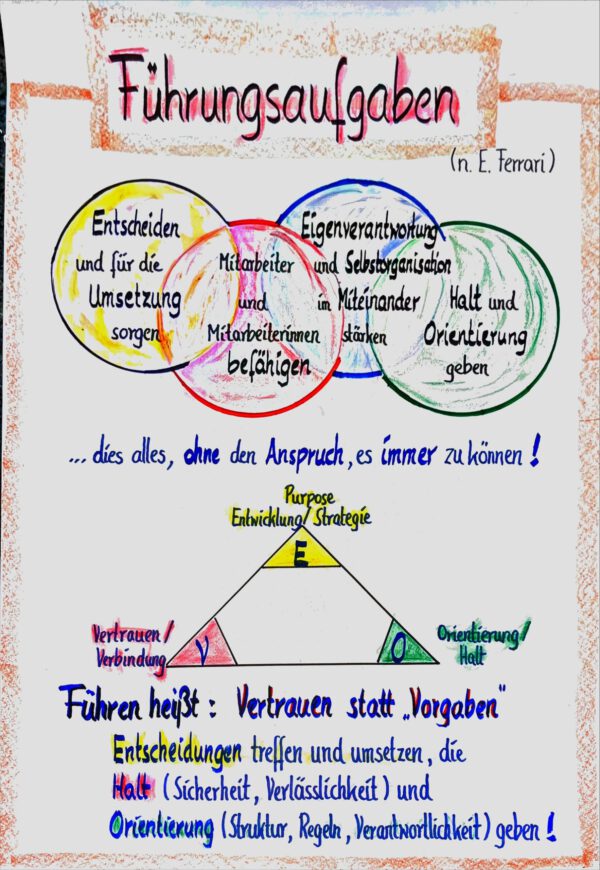 Führungsaufgaben
(n. E. Ferrari)
Entscheiden
und für die
Umsetzung
sorgen
Mitarbeiter
und
Mitarbeiterinnen
befähigen
Eigenverantwortung
und Selbstorganisation
im Miteinander
stärken
Halt und
Orientierung
geben
... dies alles, ohne den Anspruch, es immer zu können!
Purpose
Entwicklung/Strategie
E
Vertrauen/
Verbindung
V
O
Orientierung/
Halt
Führen heißt: Vertrauen statt „Vorgaben“
Entscheidungen treffen und umsetzen, die
Halt (Sicherheit, Verlässlichkeit) und
Orientierung (Struktur, Regeln, Verantwortlichkeit) geben!